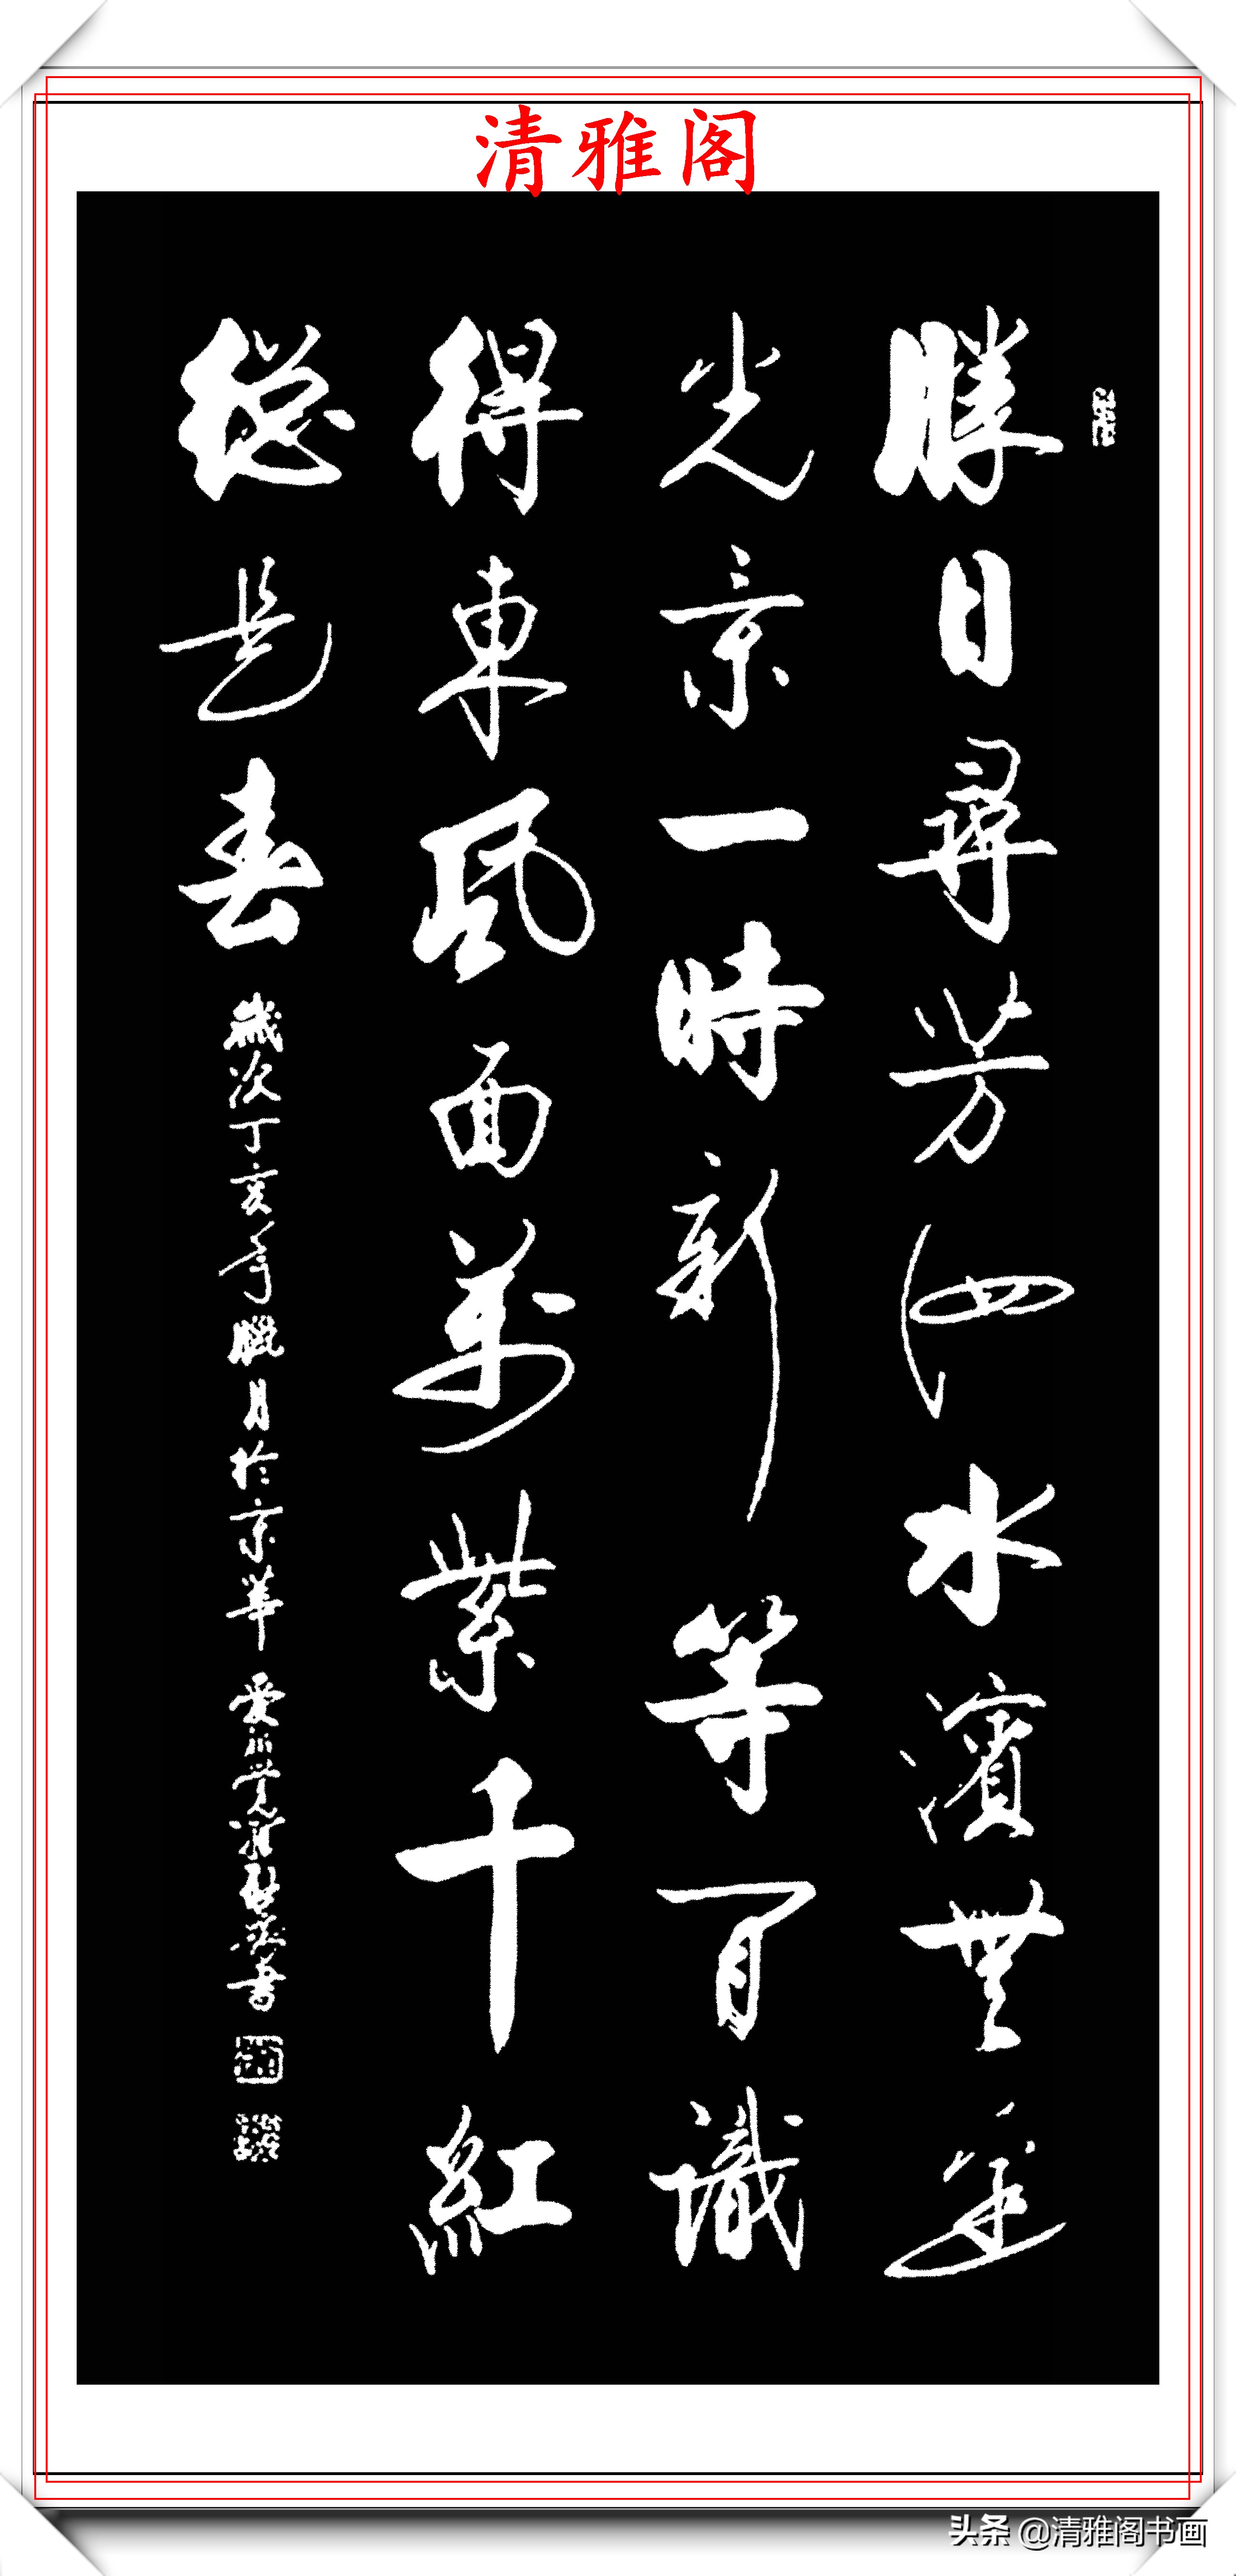 清雅阁
勝日尋芳泗水濱無邊
光景一時新等閒識
得東風面萬紫千紅
總是春
歲次丁亥年臘月於京華 愛新覺羅書
头条 @清雅阁书画